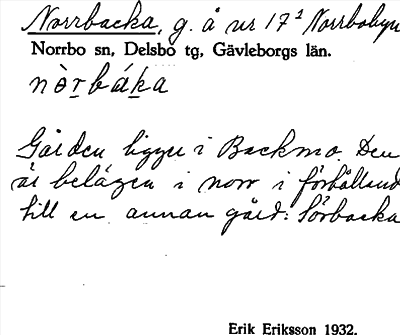 Norrbacka, g. å nr 17² Norrbobyn
Norrbo sn, Delsbo tg, Gävleborgs län.
nòrbáka
Gården ligger i Backmo. Den
är belägen i norr i förhålland
till en annan gård: Sörbacka
Erik Eriksson 1932.